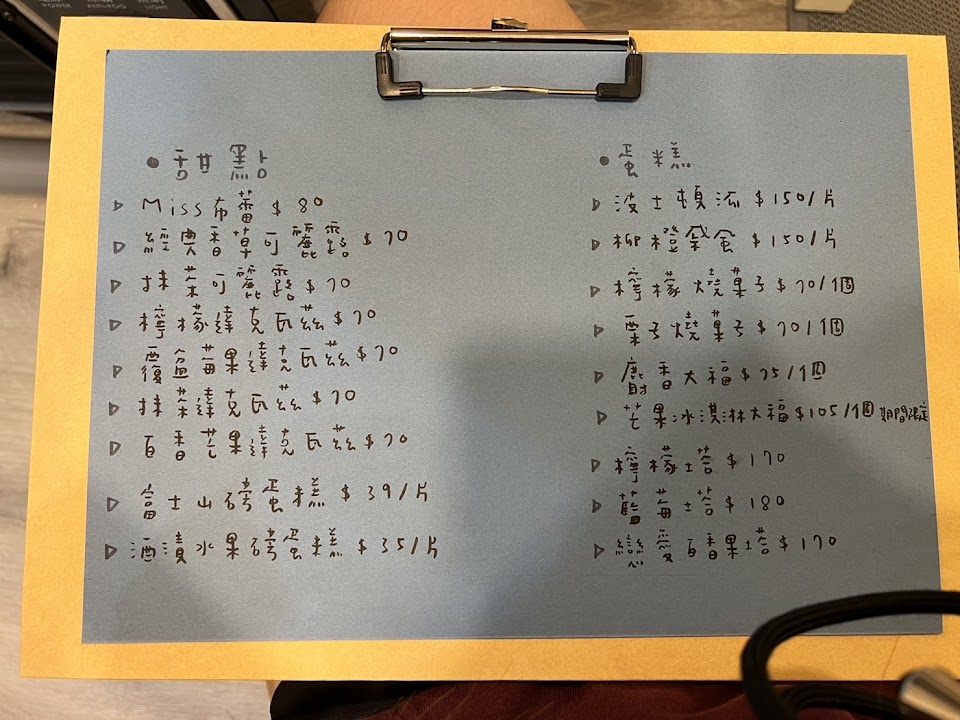 • 甜點
▷ Miss布蕾 $80
▷ 經典香草可麗露 $70
▷ 抹茶可麗露 $70
▷ 檸檬達克瓦茲 $70
▷ 覆盆莓果達克瓦茲 $70
▷ 抹茶達克瓦茲 $70
▷ 百香芒果達克瓦茲 $70
▷ 富士山磅蛋糕 $39/片
▷ 酒漬水果磅蛋糕 $35/片
• 蛋糕
▷ 波士頓派 $150/片
▷ 柳橙戚風 $150/片
▷ 檸檬燒菓子 $70/1個
▷ 栗子燒菓子 $70/1個
▷ 麝香大福 $75/1個
▷ 芒果冰淇淋大福 $105/1個 期間限定
▷ 檸檬塔 $170
▷ 藍莓塔 $180
▷ 戀愛百香果塔 $170